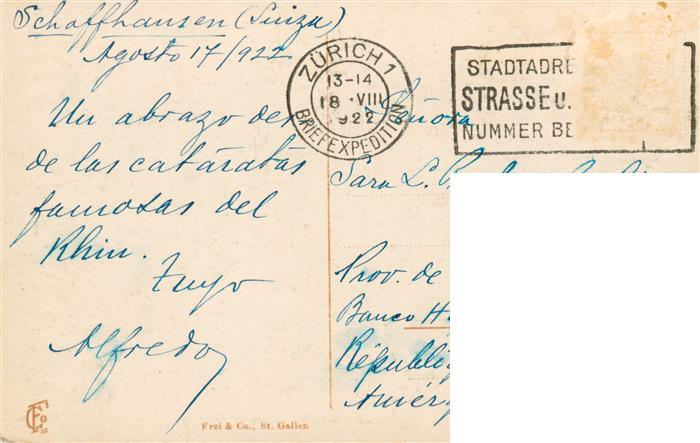 Schaffhausen (Suiza)
Agosto 17/922
Un abrazo des
de las cataratas
famosas del
Rhin.
Tuyo
Alfredo
ZÜRICH 1
13-14
18.VIII
1922
BRIEFEXPEDITION
STADTADRE
STRASSE u.
NUMMER BE
Señora
Sara L.
Prov. de
Banco H
Républi
Amér
Frei & Co., St. Gallen